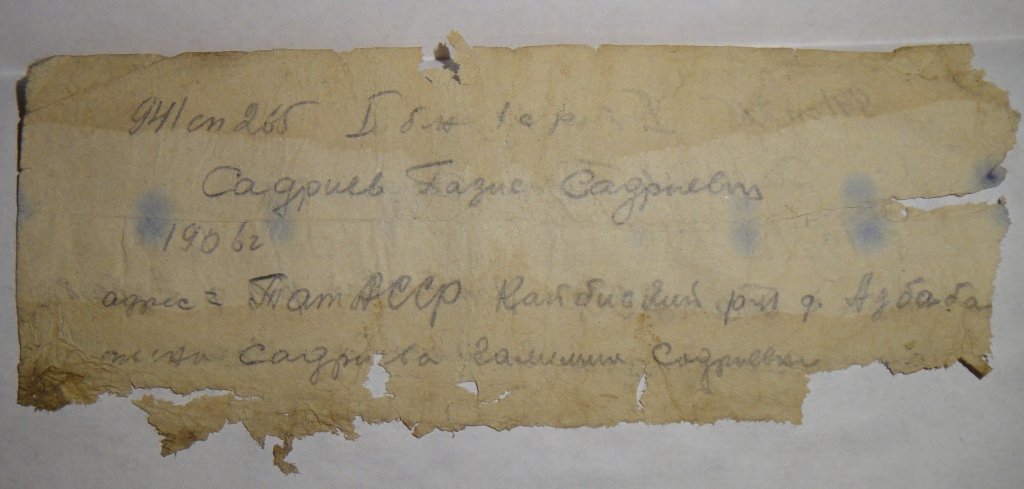 941 сп 2бб I бл 1 ср
Садриев Газис Садриевич
1906г
адрес = Тат АССР Кайбиский р-н д. Азбаба
жена Садриева Галимия Садриевна